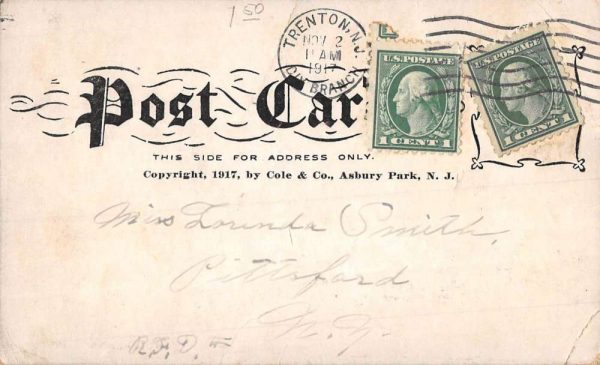 1 50
TRENTON, N.J.
NOV 2
11 AM
1917
BRANCH
U.S. POSTAGE
1 CENT 1
U.S. POSTAGE
1 CENT 1
Post Car
THIS SIDE FOR ADDRESS ONLY.
Copyright, 1917, by Cole & Co., Asbury Park, N. J.
Miss Lorinda Smith,
Pittsford
N.Y.
R.F.D.